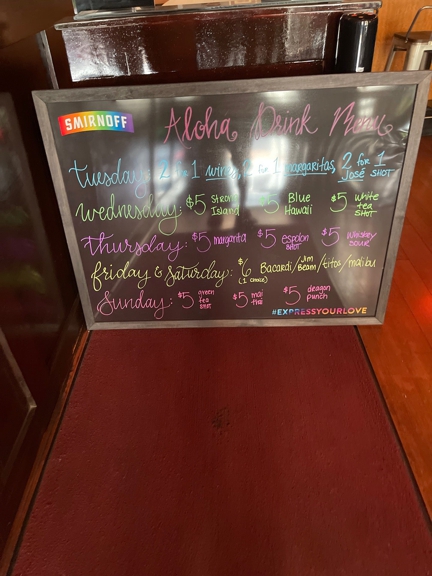 SMIRNOFF
Aloha Drink Menu
tuesday: 2 for 1 wines, 2 for 1 margaritas, 2 for 1 JOSÉ SHOT
wednesday: $5 Strong Island $5 Blue Hawaii $5 white tea SHOT
thursday: $5 margarita $5 espolon SHOT $5 Whiskey sour
friday & saturday: $6 (1 choice) Bacardi/Jim Beam/titos/malibu
Sunday: $5 green tea SHOT $5 mai thai $5 dragon punch
#EXPRESSYOURLOVE